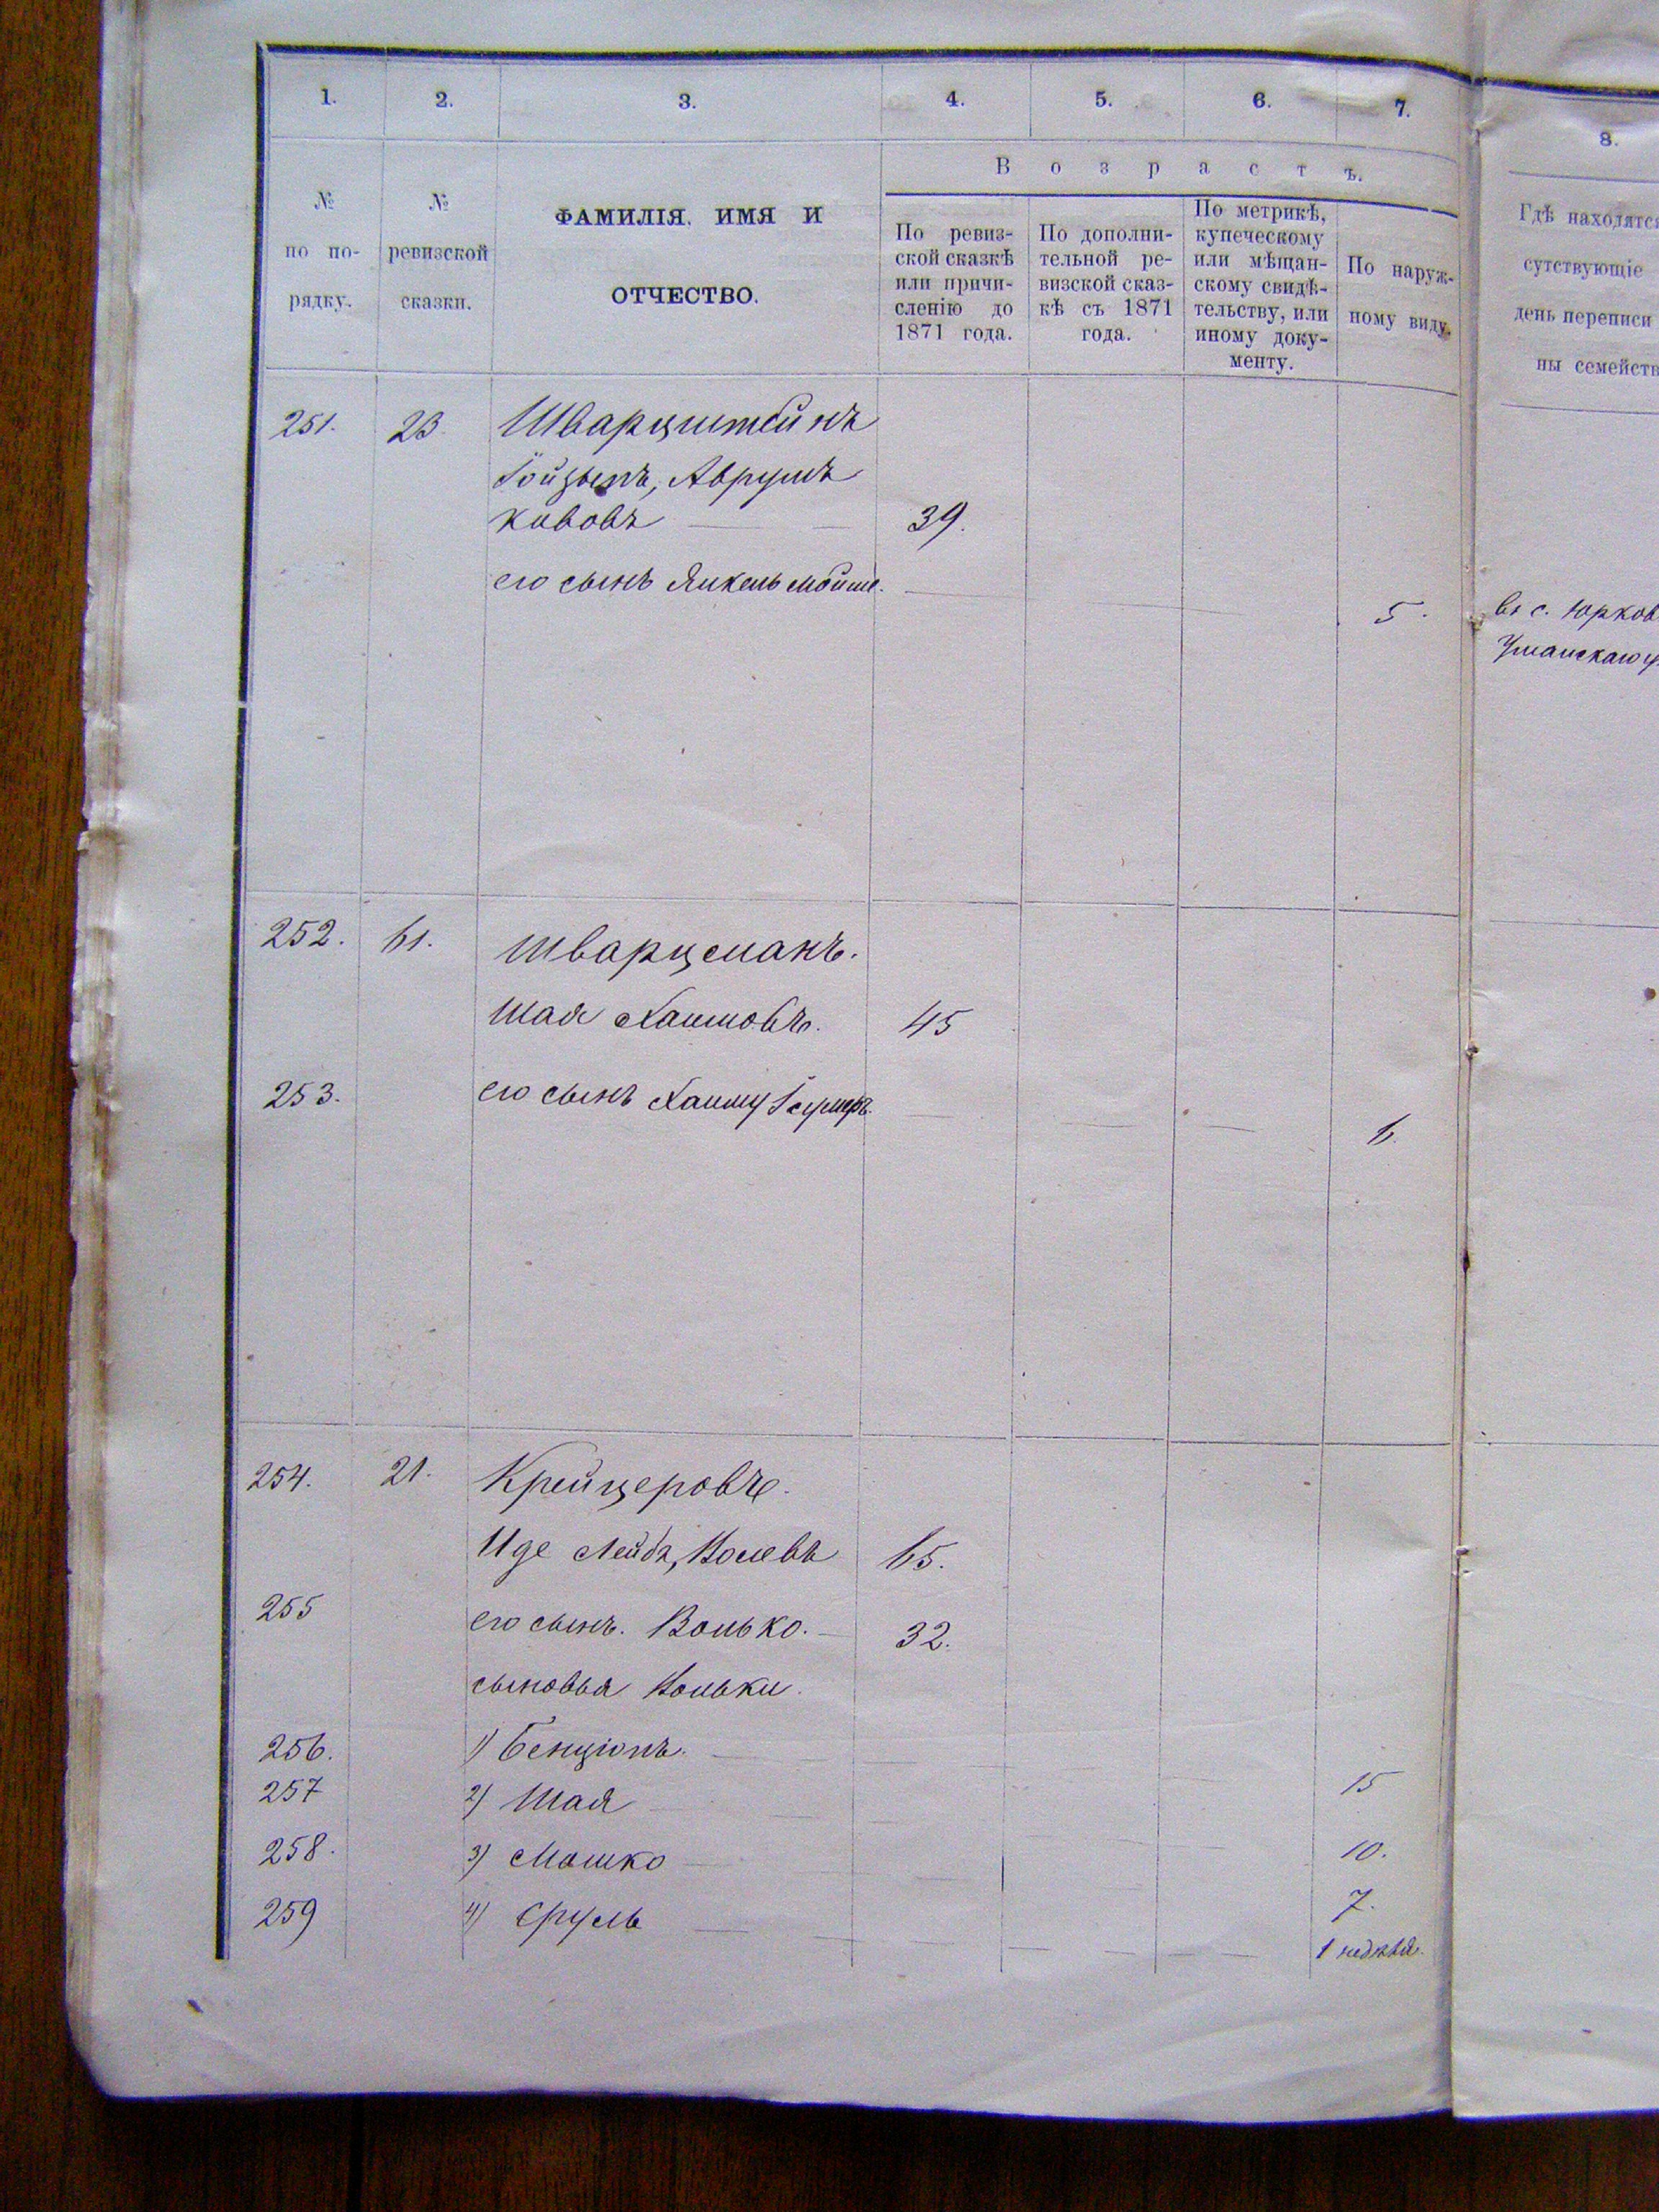 1. 2. 3. 4. 5. 6. 7. 8.
В о з р а с т ъ.
№ по по- рядку.
№ ревизской сказки.
ФАМИЛІЯ, ИМЯ И
ОТЧЕСТВО.
По ревиз-
ской сказкѣ
или причи-
сленію до
1871 года.
По дополни-
тельной ре-
визской сказ-
кѣ съ 1871
года.
По метрикѣ,
купеческому
или мѣщан-
скому свидѣ-
тельству, или
иному доку-
менту.
По наруж-
ному виду.
Гдѣ находятся
сутствующіе
день переписи
ны семейств
251. 23 Шварцштейнъ
Аврумъ
39.
его сынъ Янкель Мойше. 5. въ с. Юрков
Уманскаго у.
252. 61. Шварцманъ.
Шая Хаимовъ. 45
253. его сынъ 6
254. 21. Крейцеровъ.
Иде Лейба, 65.
255 его сынъ. Волько. 32.
сыновья Вольки.
256. 1) Бенціонъ. 15
257 2) Шая 10.
258. 3) Мошко 7.
259 4) Сруль 1 недѣля.